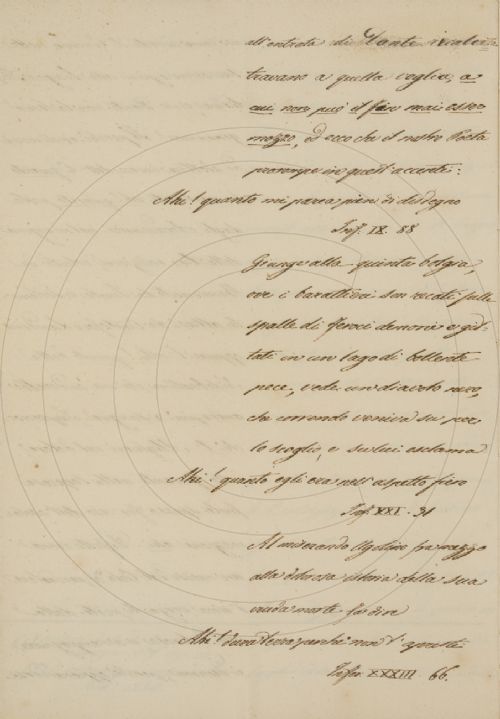 all'entrata di Dante recalci
travano a quella voglia, a
cui non può il fin mai esser
mozzo, ed ecco che il nostro Poeta
prorompe in questi accenti:
Ahi! quanto mi parea pien di disdegno
Inf. IX. 88
Giunge alla quinta bolgia,
ove i barattieri son recati sulle
spalle di feroci demonii e git-
tati in un lago di bollente
pece, vede un diavolo nero,
che correndo veniva su per
lo scoglio, e su lui esclama
Ahi! quanto egli era nell'aspetto fiero
Inf. XXI. 31
Al miserando Ugolino fra mezzo
alla dolorosa istoria della sua
cruda morte fa dire
Ahi! dura terra, perchè non t'apristi
Infer. XXXIII. 66.